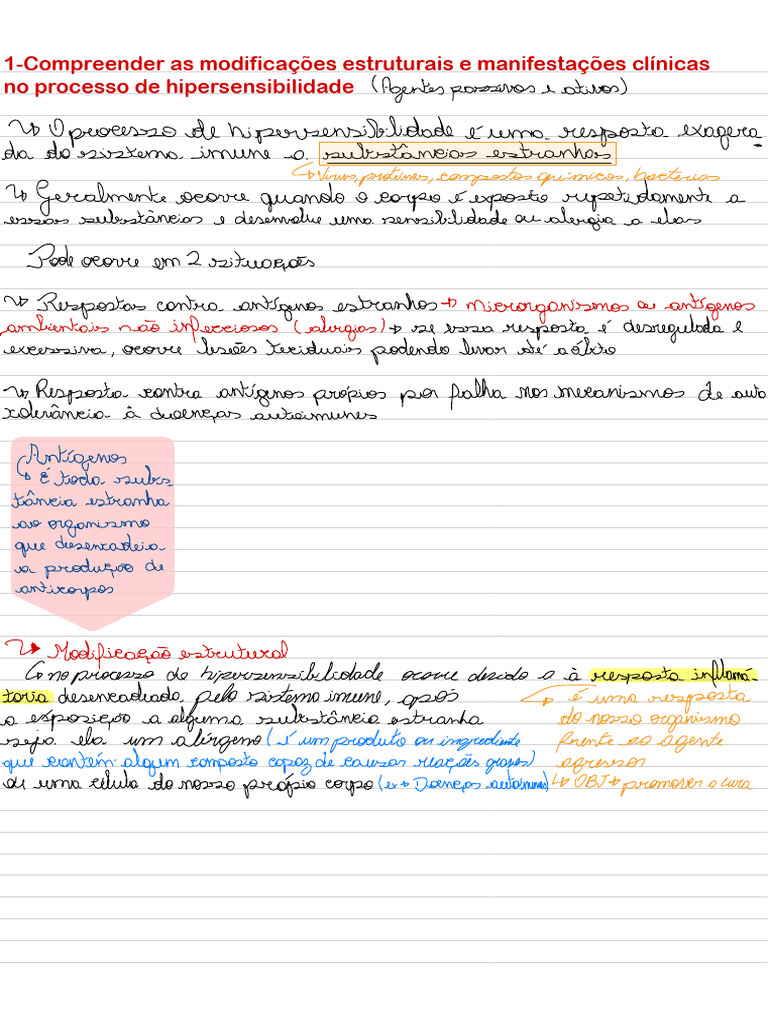 1-Compreender as modificações estruturais e manifestações clínicas
no processo de hipersensibilidade (Agentes passivos e ativos)
↳ O processo de hipersensibilidade é uma resposta exagera-
da do sistema imune a substâncias estranhas
↳ Vírus, proteínas, compostos químicos, bactérias
↳ Geralmente ocorre quando o corpo é exposto repetidamente a
essas substâncias e desenvolve uma sensibilidade ou alergia a elas
Pode ocorre em 2 situações
↳ Respostas contra antígenos estranhos → microrganismos ou antígenos
ambientais não infecciosos (alergias) → se essa resposta é desregulada e
excessiva, ocorre lesões teciduais podendo levar até a óbito
↳ Resposta contra antígenos própios por falha nos mecanismos de auto
tolerância à doenças autoimunes
Antígenos
↳ É toda subs-
tância estranha
ao organismo
que desencadeia
a produção de
anticorpos
↳ Modificação estrutural
↳ no processo de hipersensibilidade ocorre devido a à resposta inflamá-
toria desencadeada pelo sistema imune, após
a exposição a alguma substância estranha
seja ela um alérgeno (é um produto ou ingrediente
que contém algum composto capaz de causar reações graves)
ou uma célula do nosso próprio corpo (ex → Doenças autoimunes)
é uma resposta
do nosso organismo
frente ao agente
agressor
↳ OBJ → promover a cura